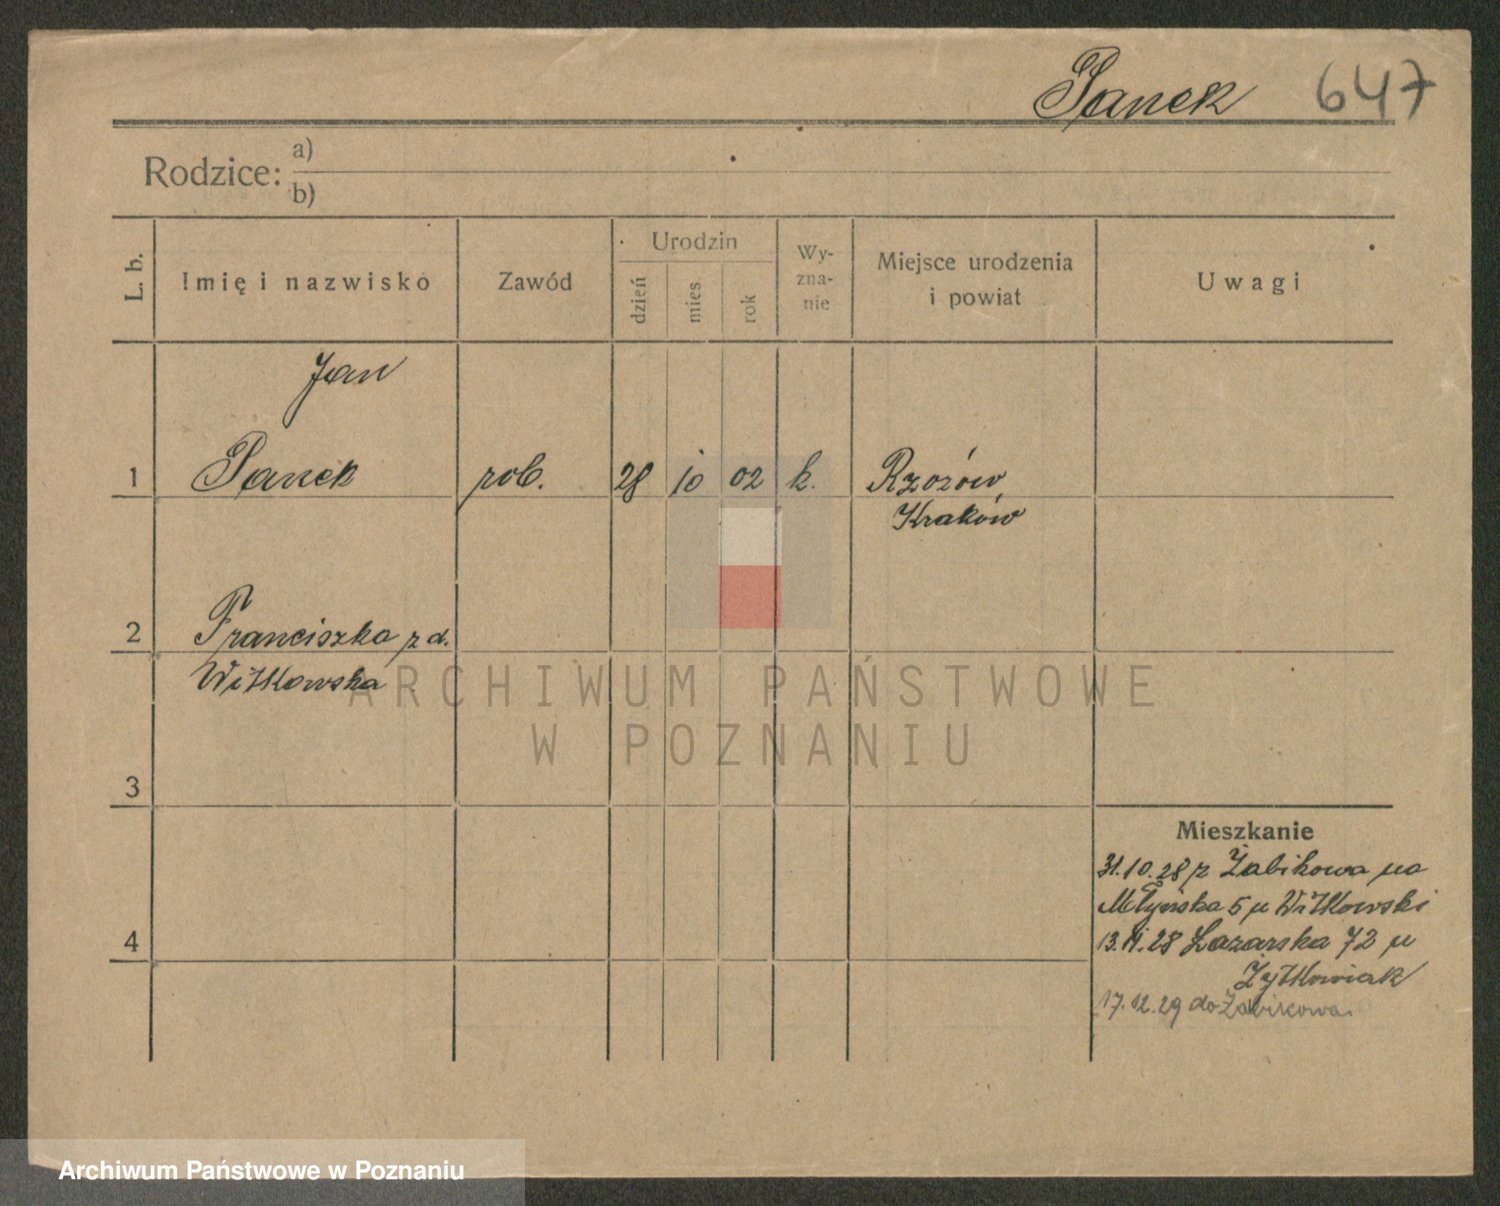 Panek 647
Rodzice: a)
b)
L. b. Imię i nazwisko Zawód Urodzin dzień mies rok Wy-zna-nie Miejsce urodzenia i powiat Uwagi
Jan
1 Panek rob. 28 10 02 k. Rzozów
Kraków
2 Franciszka z d.
Witkowska
ARCHIWUM PAŃSTWOWE
W POZNANIU
3
Mieszkanie
31.10.28 z Żabikowa na
Młyńska 5 u Witkowski
4
13.11.28 Łazarska 72 u
Żytkowiak
17.12.29 do Żabikowa.
Archiwum Państwowe w Poznaniu